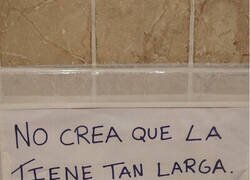 NO CREA QUE LA
TIENE TAN LARGA.